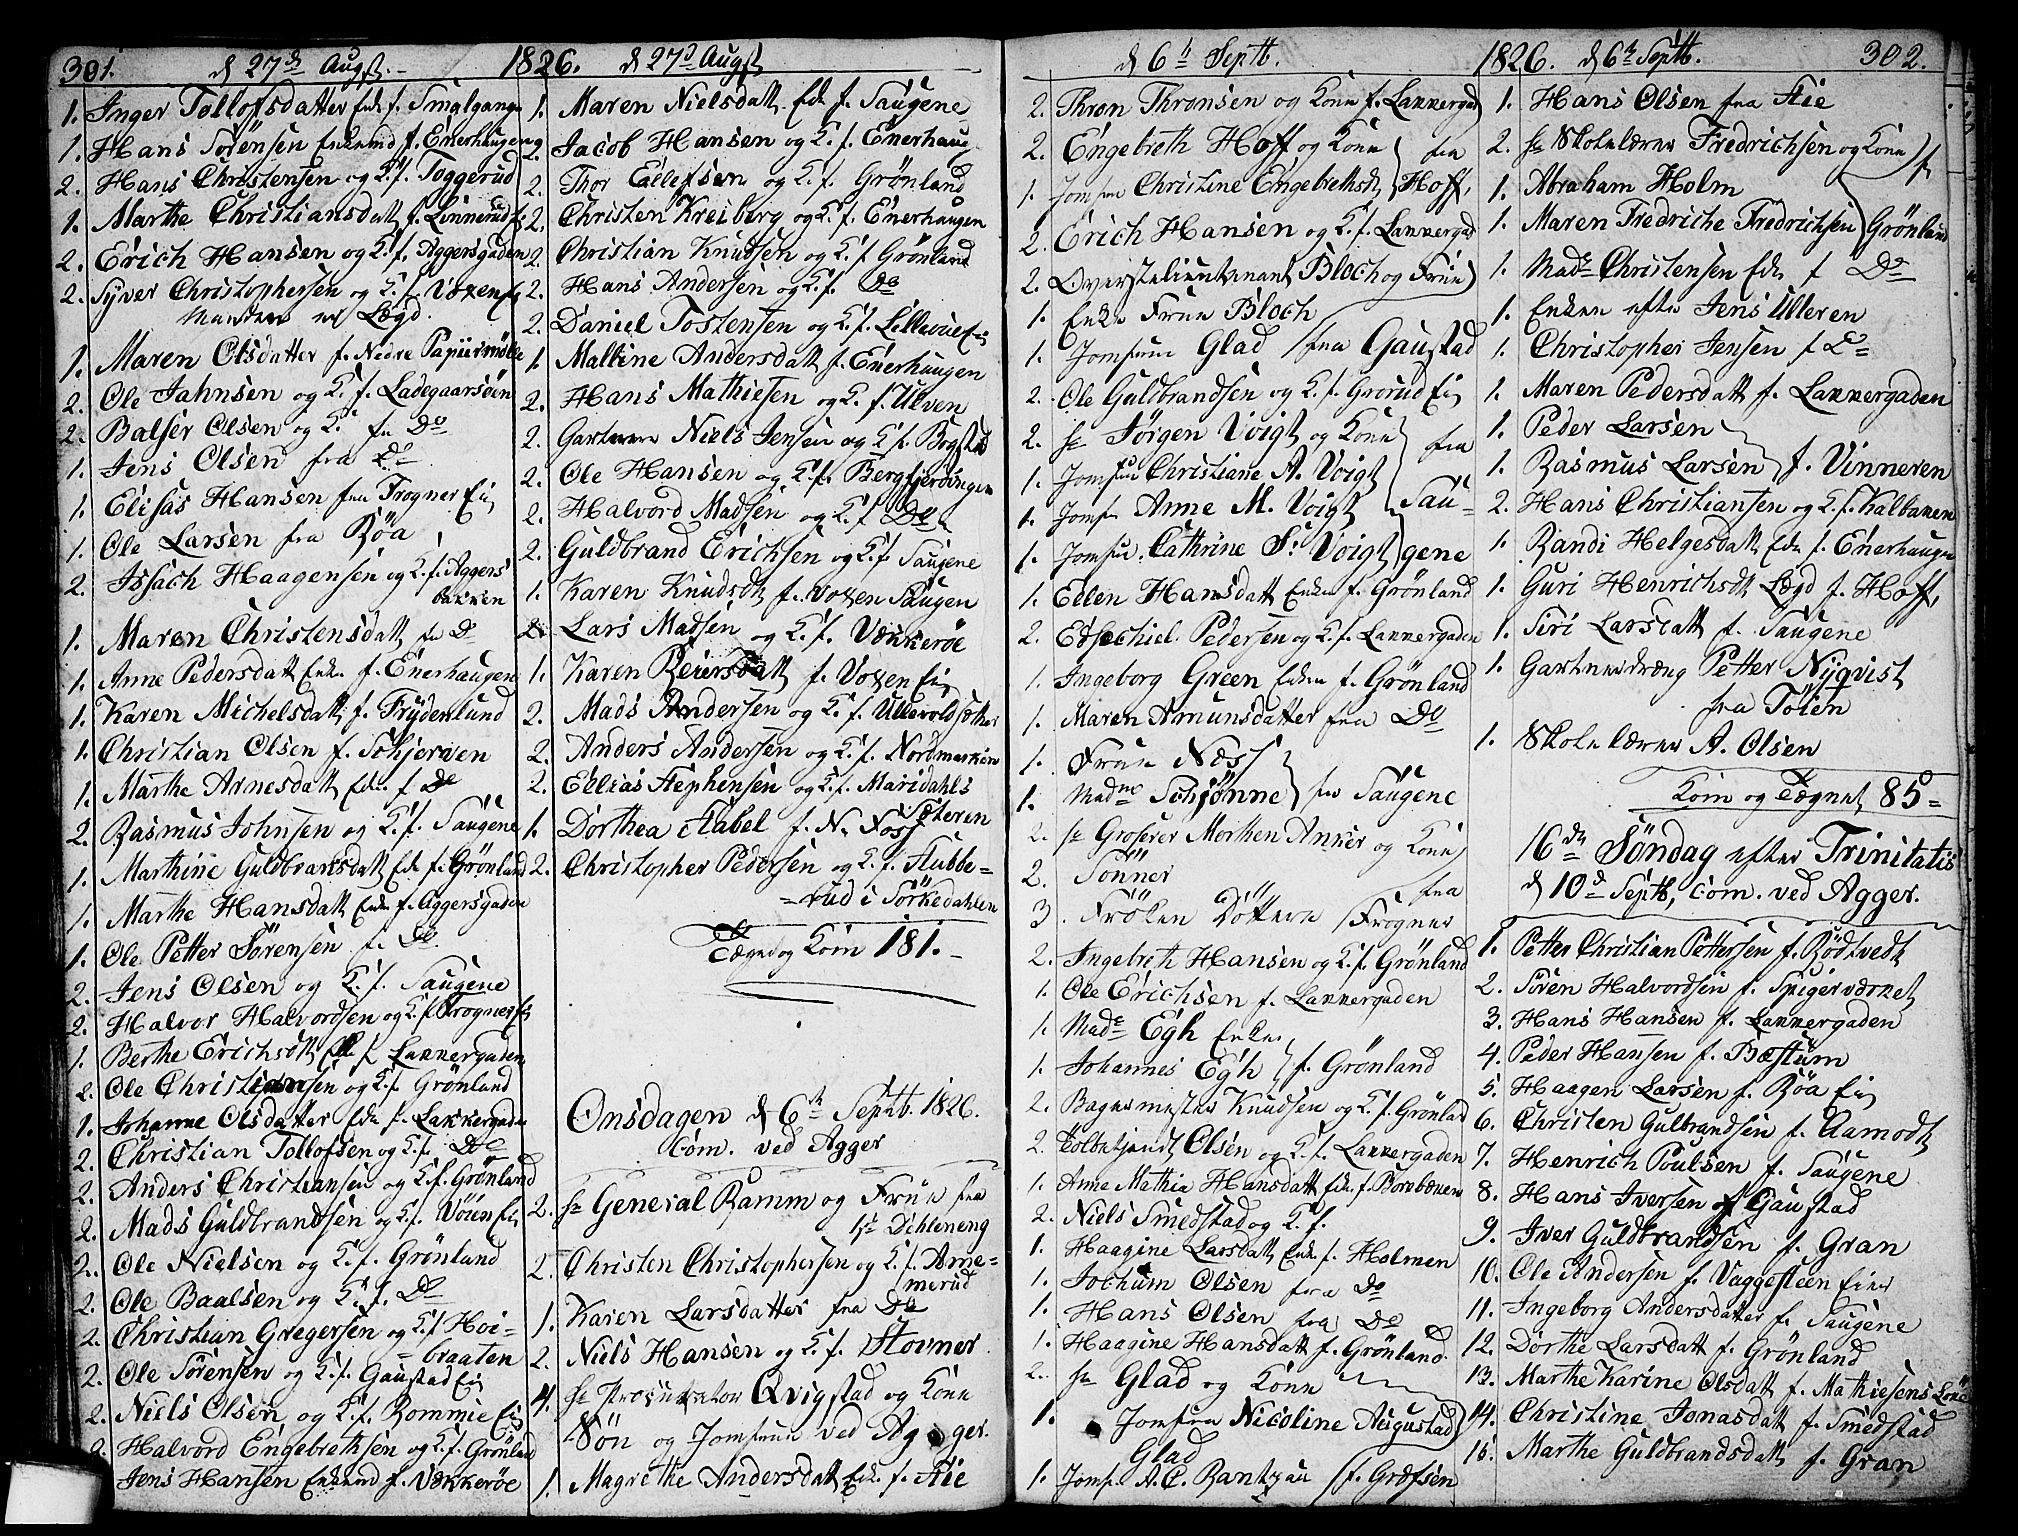 301. d 27de Augst. 1826. d 27d Augst
1. Inger Tollofsdatter Enk. f. Smalgangen
1. Hans Sörensen Enkemd f. Enerhaugen
2. Hans Christensen og K. f. Toggerud
1. Marthe Christiansdatt f. Linnerud Ei
2. Erich Hansen og K. f. Aggersgaden
2. Syver Christophersen og K. f. Voxen Ei
Manden er Lægd.
1. Maren Olsdatter f. Nedre Papiirmölle
2. Ole Jahnsen og K. f. Ladegaarsöen
2. Balser Olsen og K. fr Do
1. Jens Olsen fra Do
1. Elisas Hansen fra Frogner Ei
1. Ole Larsen fra Röa
2. Issach Haagensen og K. f. Aggers
bakken
1. Maren Christensdatt fr Do
1. Anne Pedersdatt Enk. f. Enerhaugen
1. Karen Michelsdatt f. Frydenlund
1. Christian Olsen f. Schjerven
1. Marthe Arnesdatt Enk. f Do
2. Rasmus Johnsen og K. f. Saugene
1. Marthine Guldbransdatt Enk f. Grönland
1. Marthe Hansdatt Enk. f. Aggersgaden
1. Ole Petter Sörensen f. Do
2. Jens Olsen og K. f. Saugene
2. Halvor Halvordsen og K. f Frogner Ei
1. Berthe Erichsdtt Enk f. Lakkergaden
2. Ole Christiansen og K. f. Grönland
1. Johanne Olsdatter Enk f. Lakkergaden
2. Christian Tollofsen og K. f. Do
2. Anders Christiansen og K. f. Grönland
2. Mads Guldbrandsen og K. f. Vöien Ei
2. Ole Nielsen og K. f. Grönland
2. Ole Baalsen og K. f. Do
2. Christian Gregersen og K. f Hoi-
braaten
2. Ole Sörensen og K. f. Gaustad Ei
2. Niels Olsen og K. f. Rommie Ei
2. Halvord Engebrethsen og K. f. Grönland
Jens Hansen Enkemd f. Vækkeröe
1. Maren Nielsdatt Enk f. Saugene
2. Jacob Hansen og K. f. Enerhaug
2. Thor Ellefsen og K. f. Grönland
2. Christen Kreiberg og K. f. Enerhaugen
2. Christian Knudsen og K. f. Grönland
2. Hans Andersen og K. f. Do
2. Daniel Tostensen og K. f. Lilleviie Ei
1. Malline Andersdatt f. Enerhaugen
2. Hans Mathiesen og K. f. Ulven
2. Gartner Niels Jensen og K. f. Bogstad
2. Ole Hansen og K. f. Bergfjerdingen
2. Halvord Madsen og K. f Do
2. Guldbrand Erichsen og K. f Saugene
1. Karen Knudsdt f. Voxen Saugen
2. Lars Madsen og K. f. Vækkeröe
1. Karen Reiersdatt f. Voxen Ei
2. Mads Andersen og K. f. Ullevoldsæther
2. Anders Andersen og K. f. Nordmarken
2. Ellias Stephensen og K. f. Maridahls
Sæteren
1. Dorthea Aabel f. N. Foss
2. Christopher Pedersen og K. f. Stubbe-
rud i Sörkedahlen
Tægnd og Kom 181.
Onsdagen d 6te Septb. 1826.
Com. ved Agger
2. Hr General Ramm og Frue fra
Dehleneng
2. Christen Christophersen og K. f. Arne-
merud
1. Karen Larsdatter fra Do
2. Niels Hansen og K. f. Stovner
4. Hr Procurator Qvigstad og Kone
Sön og Jomfrue ved Agger.
1. Magrethe Andersdatt Enk. f. Aie
d 6te Septb. 1826. d 6te Septb. 302.
2. Thron Thronsen og Kone f. Lakkergad
2. Engebreth Hoff og Kone fra
1. Jomfrue Christine Engebrethsdt Hoff,
2. Erich Hansen og K. f. Lakkergad
2. Overstelieutenant Bloch og Frue
1. Enke Frue Bloch
1. Jomfrue Glad fra Gaustad
2. Ole Guldbrandsen og K. f. Grorud Ei
2. Hr Jörgen Voigt og Kone fra
1. Jomfrue Christiane A. Voigt
1. Jomfr Anne M. Voigt Sau-
1. Jomfrue Cathrine S: Voigt gene
1. Ellen Hansdatt Enke f. Grönland
2. Edsechiel Pedersen og K. f. Lakkergaden
1. Ingeborg Green Enke f. Grönland
1. Maren Amunsdatter fra Do
1. Frue Næss
1. Madme Schjönne fra Saugene
2. Hr Groserer Morthen Anker og Kone
2. Sönner fra
3. Fröken Döttere Frogner
2. Ingebreth Hansen og K. f. Grönland
1. Ole Erichsen f. Lakkergaden
1. Made Egh Enke
1. Johannes Egh f. Grönland
2. Bagermester Knudsen og K. f. Grönland
2. Toldbetjendt Olsen og K. f. Lakkergaden
1. Anne Mathia Hansdatt Enk f. Bornbænen
2. Niels Smedstad og K. f.
1. Haagine Larsdatt Enk. f. Holmen
1. Jochum Olsen fra Do
1. Hans Olsen fra Do
1. Haagine Hansdatt f. Grönland.
2. Hr Glad og Kone
1. Jomfrue Nicoline Augustad
Glad
1. Jomf. A. C. Rantzau f. Grefsen
1. Hans Olsen fra Aie
2. Hr Skolelærer Fredrichsen og Kone f
1. Abraham Holm
1. Maren Fredriche Fredrichsen Grönland
1. Made Christensen Enk f Do
1. Enken efter Jens Ulleren
1. Christopher Jensen f Do
1. Maren Pedersdatt f. Lakkergaden
1. Peder Larsen
1. Rasmus Larsen f. Vinneren
2. Hans Christiansen og K. f. Kalbakken
1. Randi Helgesdatt Enk f. Enerhaugen
1. Guri Henrichsdt Lægd f. Hoff,
1. Siri Larsdatt f. Saugene
1. Gartnerdræng Petter Nyqvist
fra Töien
1. Skolelærer A. Olsen
Kom og Tægnet 85
16de Söndag efter Trinitatis
d 10d Septb, Com. ved Agger.
1. Petter Christian Pettersen f. Rödtvedt
2. Sören Halvordsen f. Spigerværket
3. Hans Hansen f. Lakkergaden
4. Peder Hansen f. Bæstum
5. Haagen Larsen f. Röa Ei
6. Christen Gulbrandsen f. Aamodt
7. Henrich Poulsen f. Saugene
8. Hans Iversen f Gaustad
9. Iver Guldbrandsen f. Gran
10. Ole Andersen f. Vaggesteen Eier
11. Ingeborg Andersdatter f. Saugene
12. Dorthe Larsdatt f. Grönland
13. Marthe Karine Olsdatt f. Mathiesens Lökke
14. Christine Jonasdatt f. Smedstad
15. Marthe Guldbrandsdatt f. Gran